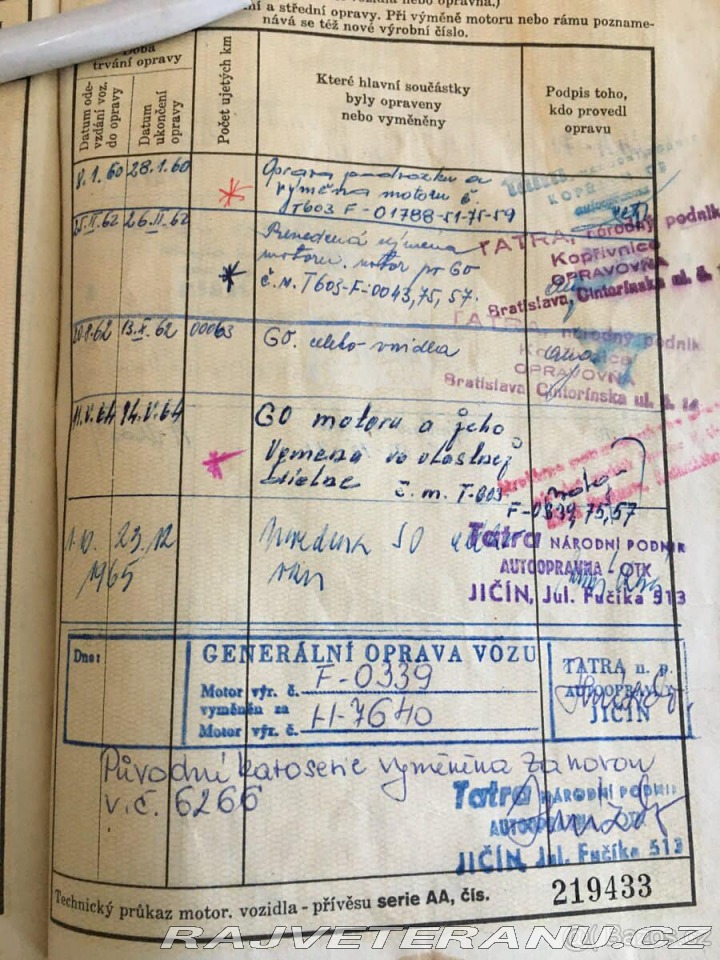 a střední opravy. Při výměně motoru nebo rámu pozname-
nává se též nové výrobní číslo.
Doba
trvání opravy
Datum ode-
vzdání voz.
do opravy
Datum
ukončení
opravy
Počet ujetých km
Které hlavní součástky
byly opraveny
nebo vyměněny
Podpis toho,
kdo provedl
opravu
8.1.60 28.1.60
Oprava podvozku a
výměna motoru č.
T603 F-01788-51-75-59
25.II.62 26.II.62
Prevedená výmena
motoru. motor po GO
č.m. T603-F-0043,75,57.
TATRA, národný podnik
Kopřivnice
OPRAVOVŇA
Bratislava, Cintorínska ul. č.
20.8.62 13.X.62 00063
GO. celého vozidla
TATRA, národný podnik
Kopřivnice
OPRAVOVŇA
Bratislava Cintorínska ul. č.
11.V.64 14.V.64
GO motoru a jeho
Výmena vo vlastnej
č.m. T-603
F-0339,75,57
1.10. 23.12
1965
Tatra NÁRODNÍ PODNIK
AUTOOPRAVNA OTK
JIČÍN, Jul. Fučíka 513
Dne:
GENERÁLNÍ OPRAVA VOZU
Motor výr. č. F-0339
vyměněn za
Motor výr. č. H-7640
TATRA n. p.
AUTOOPRAVNA
JIČÍN
Původní karoserie vyměněna za novou
v.č. 6266
Tatra NÁRODNÍ PODNIK
AUTOOPRAVNA OTK
JIČÍN, Jul. Fučíka 513
Technický průkaz motor. vozidla - přívěsu serie AA, čís. 219433
RAJVETERANU.CZ